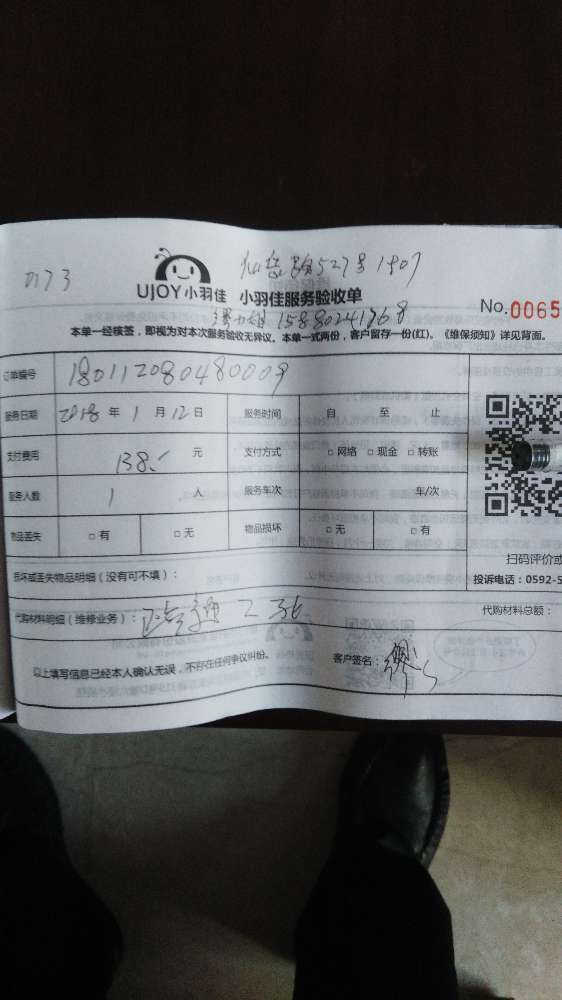 0173
仙岳路527号1407
UJOY小羽佳 小羽佳服务验收单
No.0065
15880241968
本单一经核签，即视为对本次服务验收无异议。本单一式两份，客户留存一份(红)。《维保须知》详见背面。
订单编号 180112080480009
服务日期 2018 年 1 月 12 日 服务时间 自 至 止
支付费用 138. 元 支付方式 □ 网络 □ 现金 □ 转账
服务人数 1 人 服务车次 车/次
物品丢失 □ 有 □ 无 物品损坏 □ 无 □ 有
扫码评价或
损坏或丢失物品明细（没有可不填）：
投诉电话：0592-5
代购材料明细（维修业务）：
代购材料总额：
以上填写信息已经本人确认无误，不存在任何争议纠纷。 客户签名：